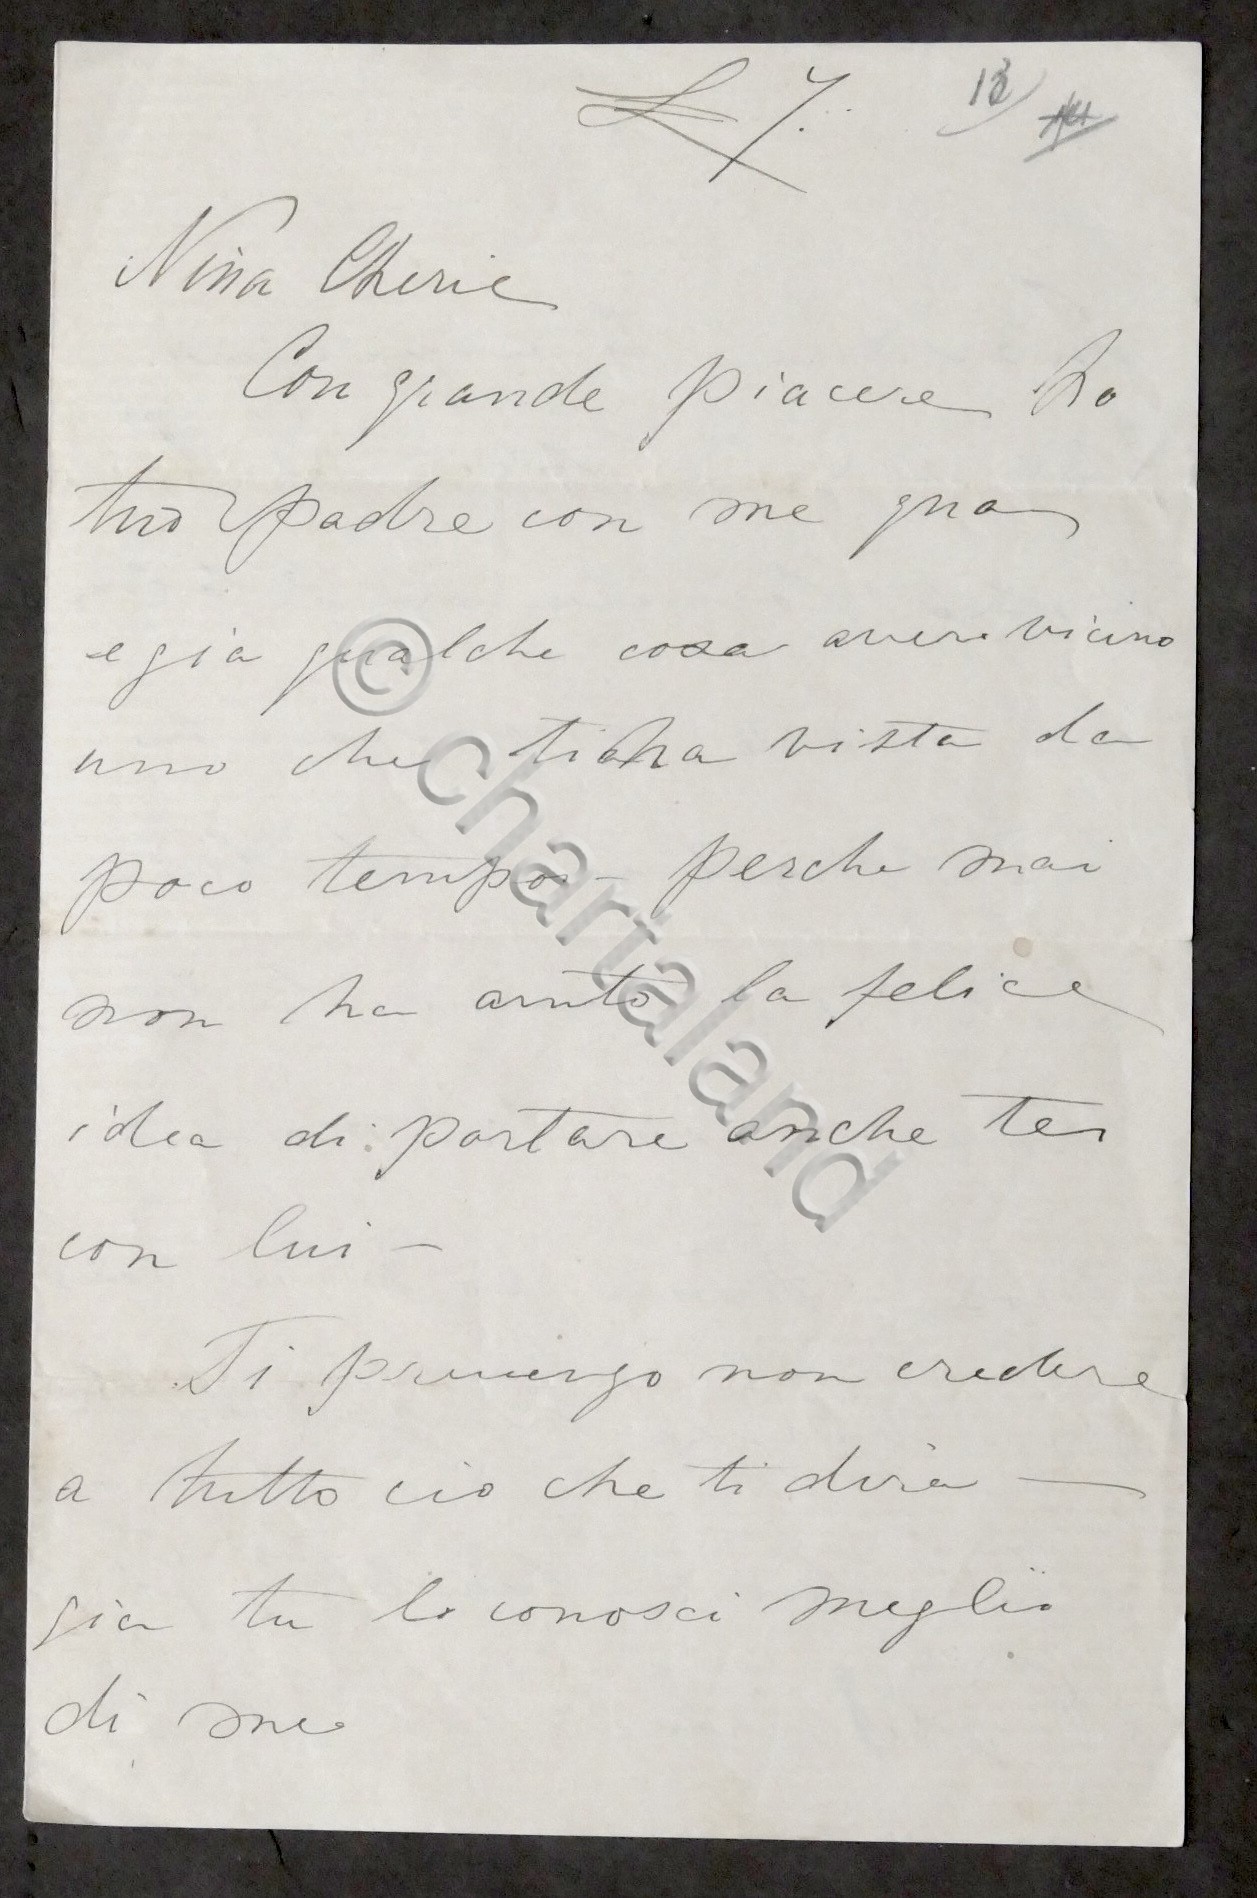 L 7.
13
Nina Cherie
Con grande piacere ho
tuo padre con me qua
e gia qualche cosa avere vicino
uno che ti ha vista da
poco tempo - perche mai
non ha avuto la felice
idea di portare anche te
con lui -
Ti prevengo non credere
a tutto cio che ti dirà -
gia tu lo conosci meglio
di me
© chartaland